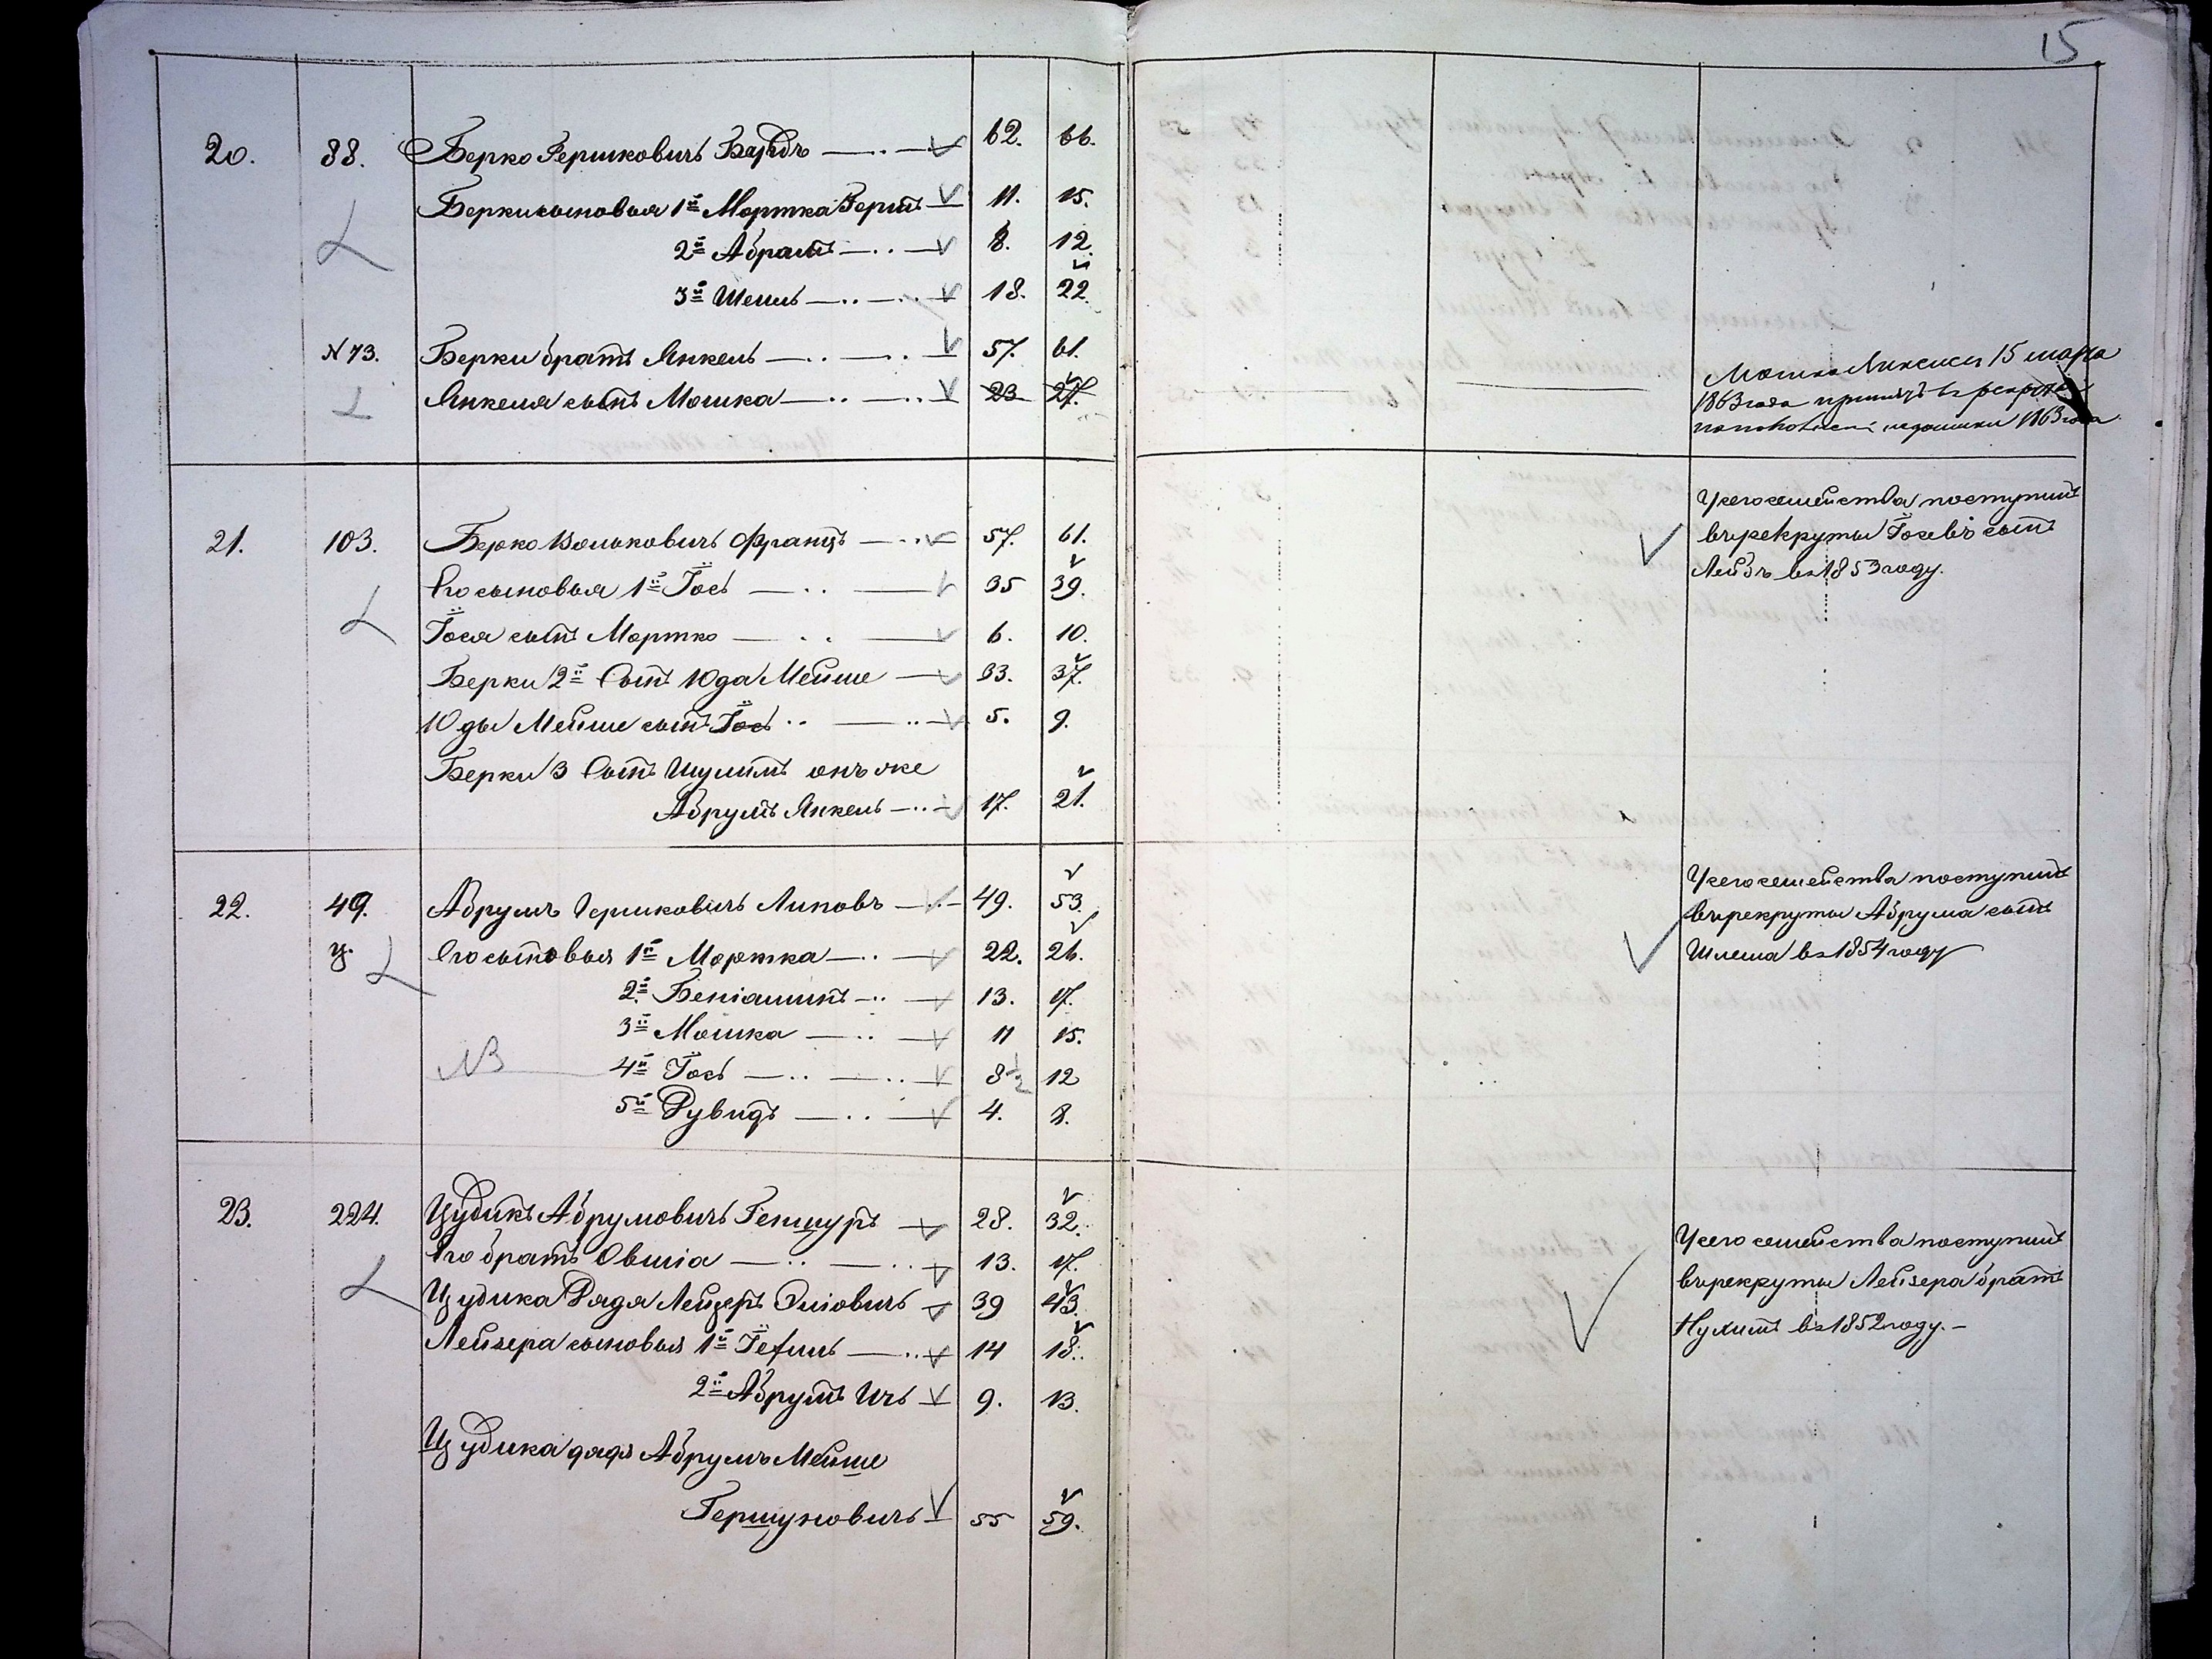 15
20. 88. Берко Гершковичъ 62. 66.
Берки сыновья 1й Мортка Герш 11. 15.
2й Абрамъ 8. 12.
3й 18. 22.
N 73. Берки братъ Янкель 57. 61.
Янкеля сынъ Мошка 23 27.
Мошка 15 марта
1863 года принятъ въ рекруты
недоимки 1863 года
21. 103. Берко Вольковичъ Францъ 57. 61.
Его сыновья 1й Іось 35 39.
Іося сынъ Мортко 6. 10.
Берки 2й Сынъ Юда Мейше 33. 37.
Юды Мейше сынъ Іось 5. 9.
Берки 3 Сынъ Шулимъ онъ же
Абрумъ Янкель 17. 21.
У сего семейства поступилъ
въ рекруты Іосевъ сынъ
Лейбъ въ 1853 году.
22. 49. Абрумъ Гершковичъ Липовъ 49. 53.
у. Его сыновья 1й Мортка 22. 26.
2й Беніаминъ 13. 17.
3й Мошка 11 15.
NB 4й Іось 8 1/2 12
5й Рувидъ 4. 8.
У сего семейства поступилъ
въ рекруты Абрума сынъ
Шлема въ 1854 году
23. 224. Цудикъ Абрумовичъ Геншуръ 28. 32.
Его братъ Овшія 13. 17.
Цудика Дядя Лейзеръ Эліовичъ 39 43.
Лейзера сыновья 1й 14 18.
2й Абрумъ Ичъ 9. 13.
Цудика дядя Абрумъ Мейше
Гершуновичъ 55 59.
У сего семейства поступилъ
въ рекруты Лейзера братъ
Нухимъ въ 1852 году. -